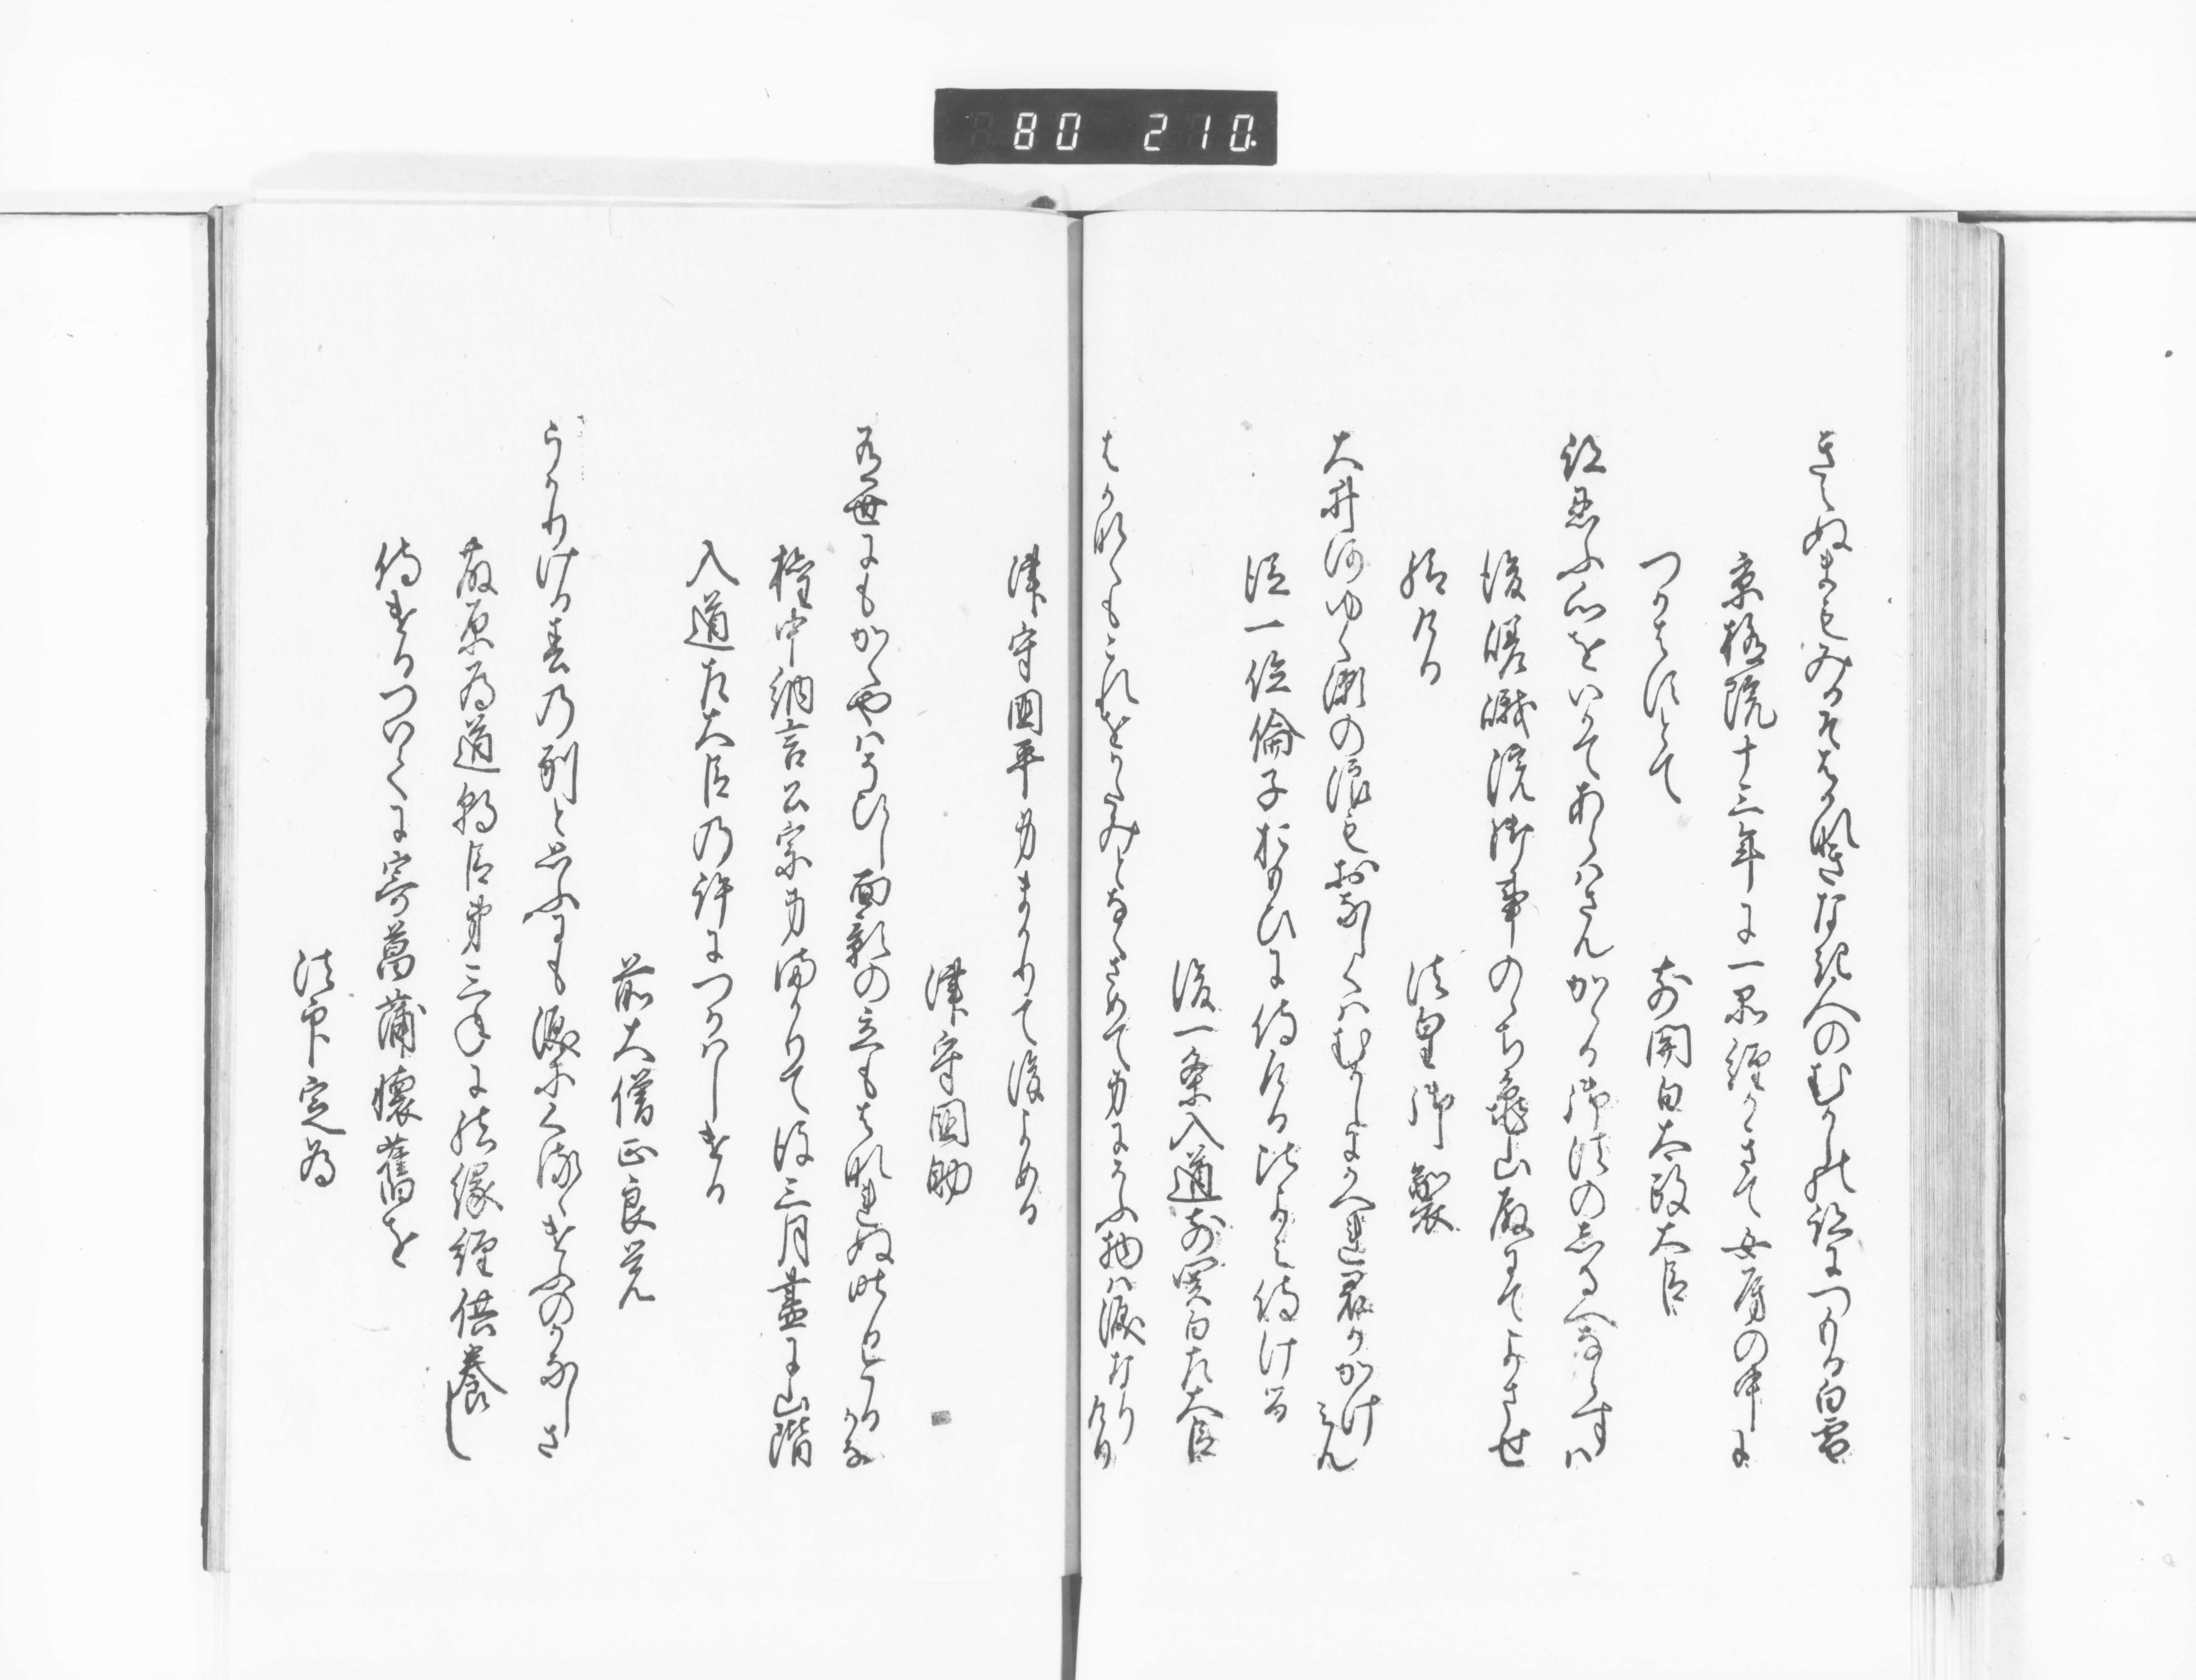 80 210
きえぬまもみるそはかなきなき人のむかしの跡につもる白雪
京極院十三年に一品経かきて女房の中に
つかはすとて
前関白太政大臣
跡思ふ心をいかてあらはさんかゝる御法のしるへならすは
後嵯峨院御事のゝち亀山殿にてよませ
給ける
法皇御製
大井河ゆく瀬の浪もおなしくはむかしにかへれ君かかけみん
従一位倫子おもひに侍ける比よみ侍ける
後一条入道前関白左大臣
はかなくもこれをかたみとなくさめて身にそふ物は涙なりけり
津守国平身まかりて後よめる
津守国助
有世にもかくやはそひし面影の立もはなれぬ昨日けふかな
権中納言公宗身まかりて後三月尽に山階
入道左大臣の許につかはしける
前大僧正良覚
うかりける春の別と思ふにも涙にくるゝけふのかなしさ
藤原為道朝臣第三年に結縁経供養し
侍けるついてに寄菖蒲懐旧を
法印定為